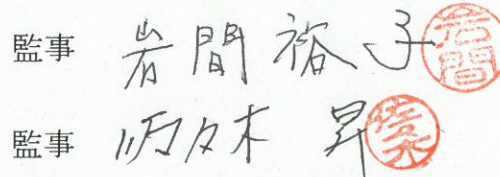 監事 岩間裕子 岩間
監事 佐々木 昇 佐々木